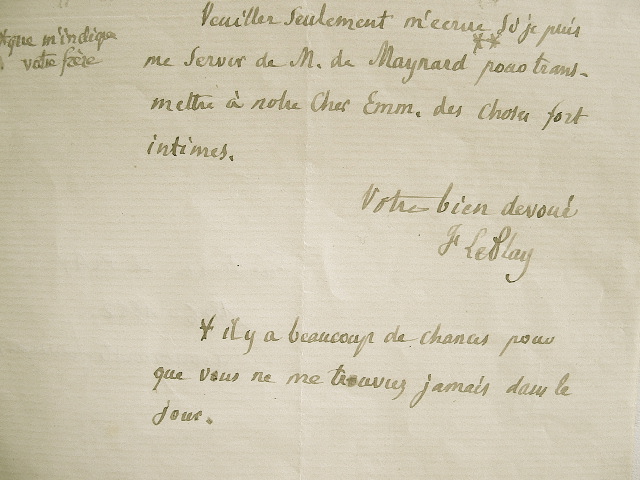 Veuillez seulement m'ecrire si je puis
*que m'indique
votre frère
me servir de M. de Maynard ** pour trans-
mettre à notre cher Emm. des choses fort
intimes.
Votre bien devoué
F LePlay
* il y a beaucoup de chances pour
que vous ne me trouviez jamais dans le
jour.